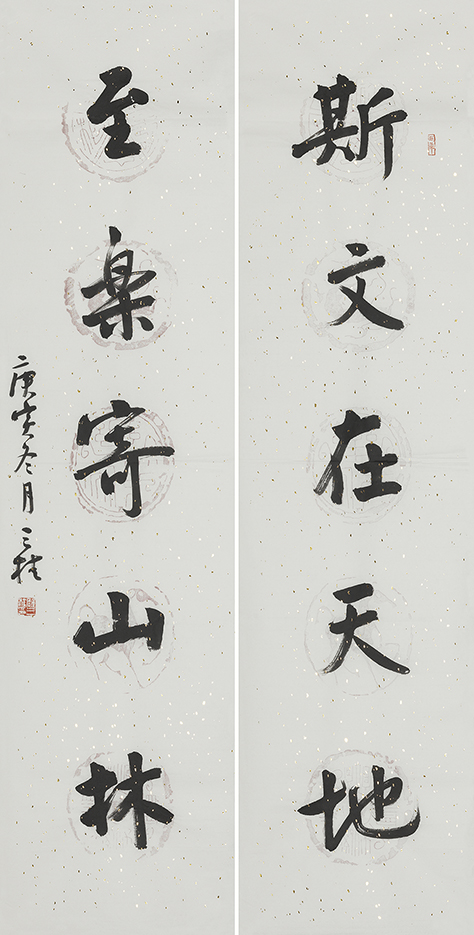 斯文在天地
至樂寄山林
庚寅冬月三桂